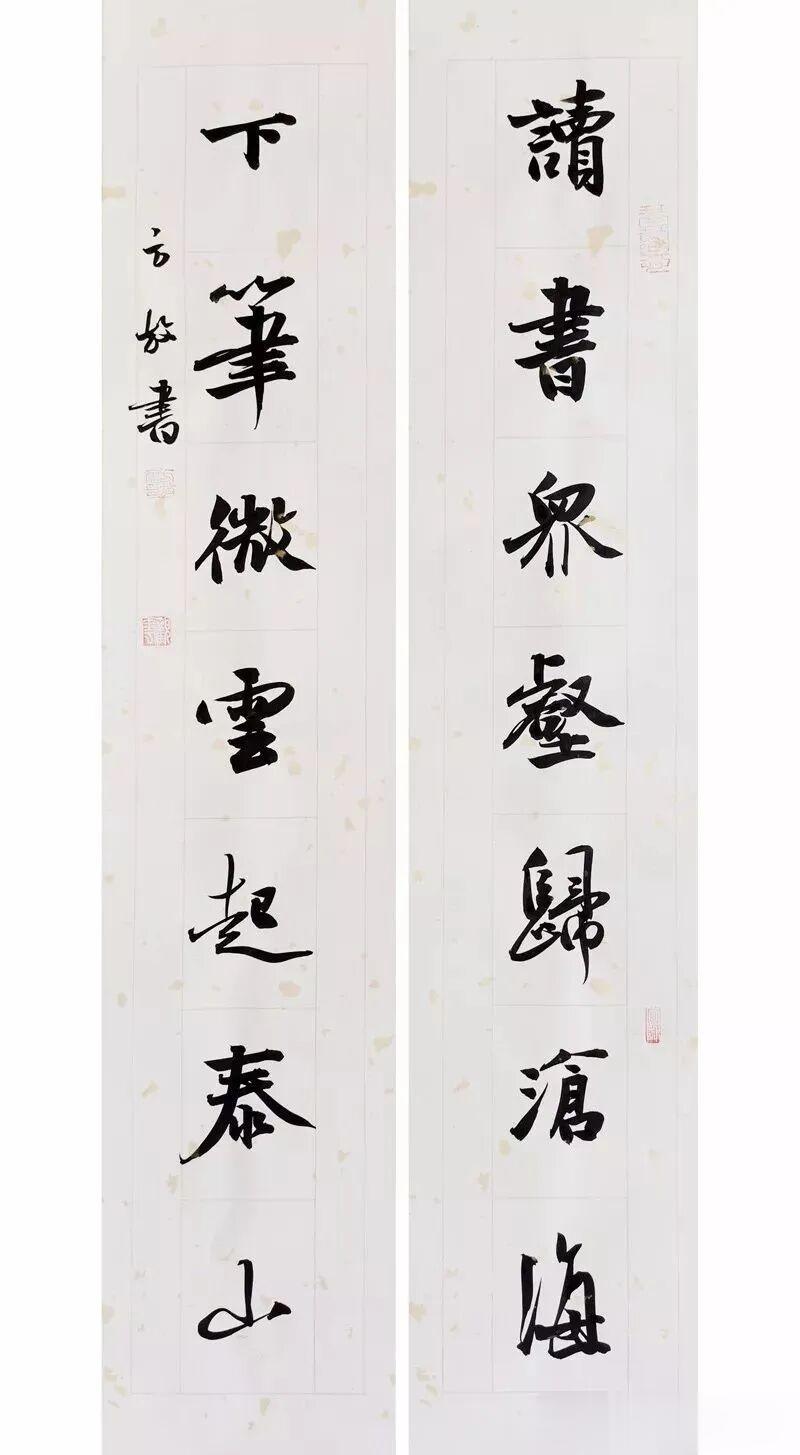 讀書眾壑歸滄海
下筆微雲起泰山
方放書